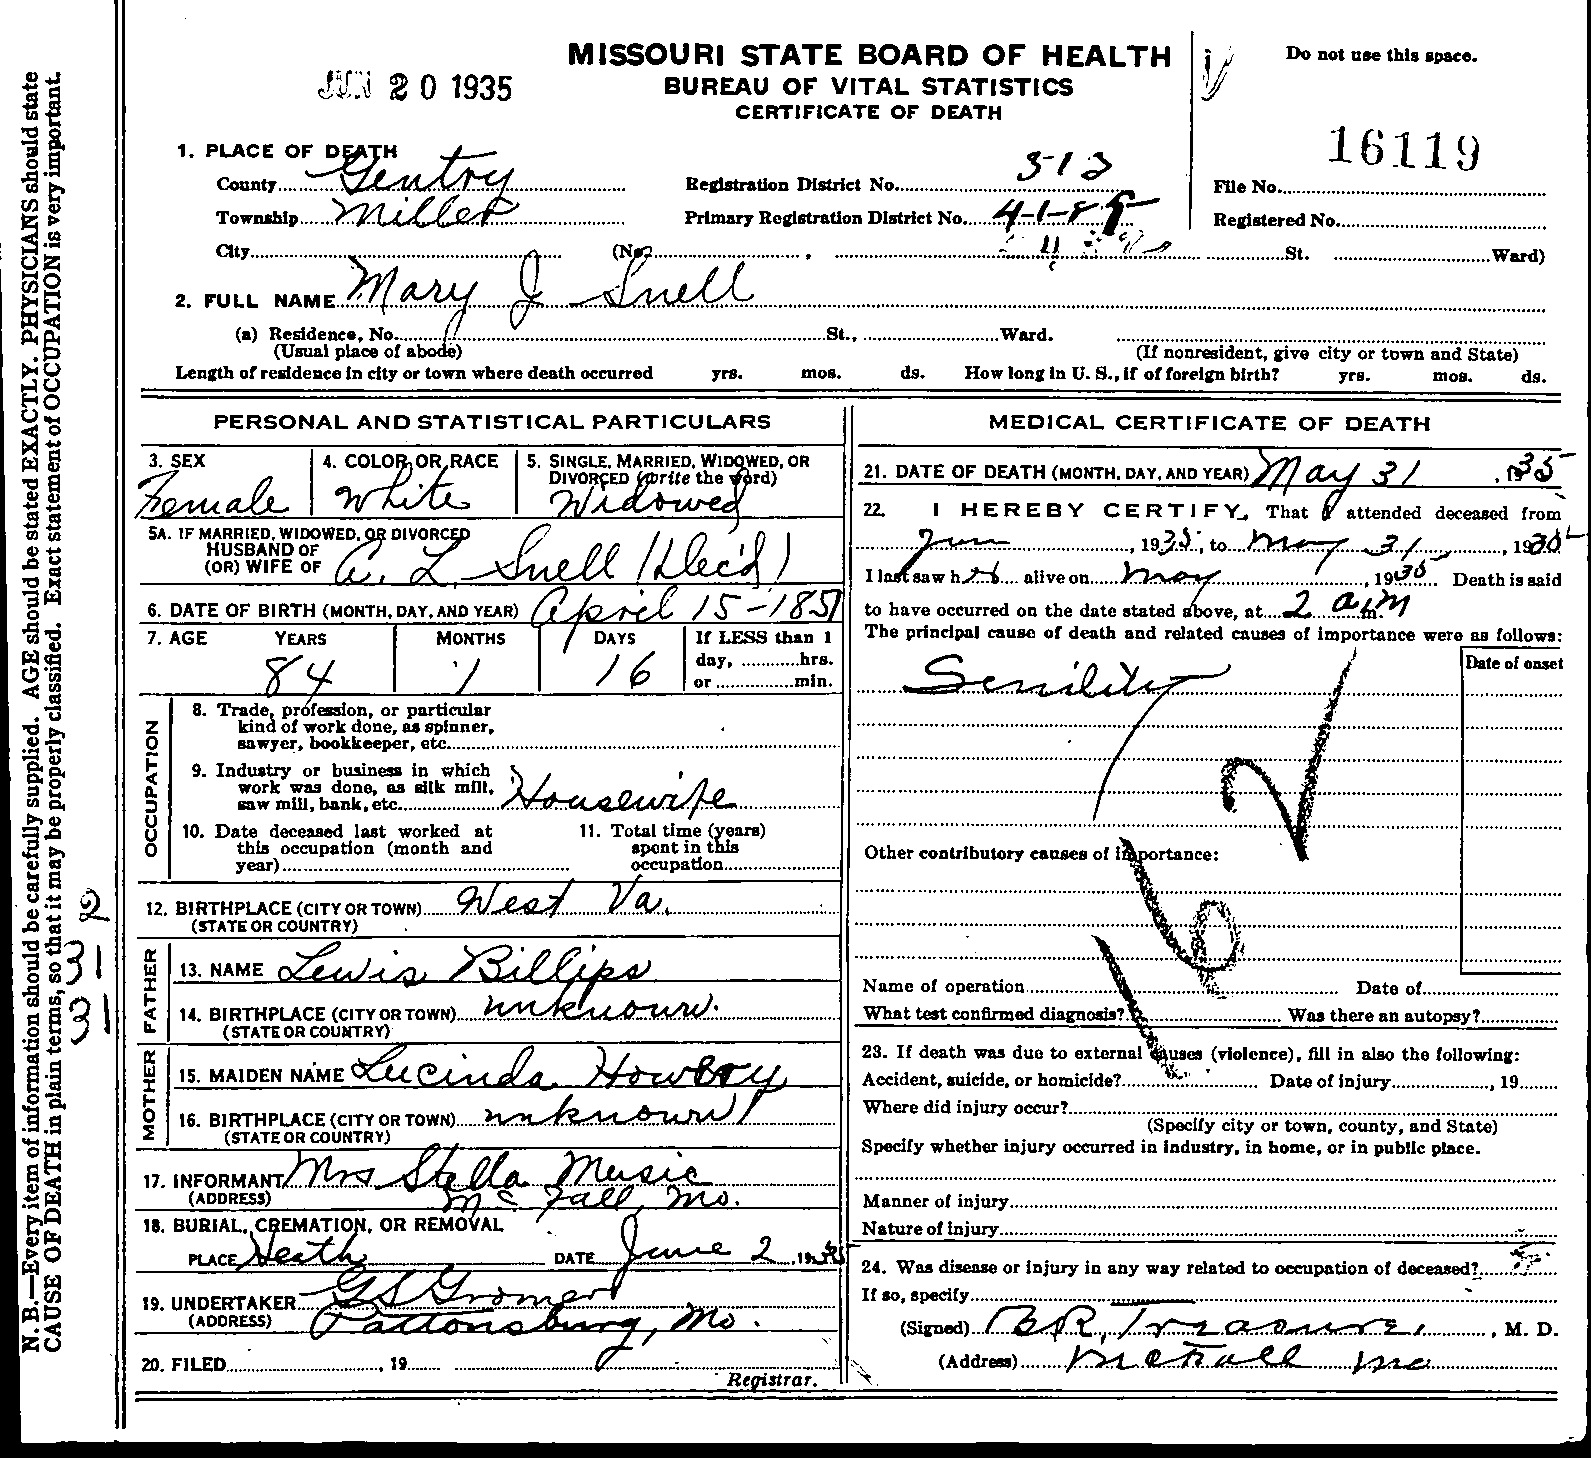 MISSOURI STATE BOARD OF HEALTH
BUREAU OF VITAL STATISTICS
CERTIFICATE OF DEATH
JUN 20 1935
Do not use this space.
16119
1. PLACE OF DEATH
County Gentry Registration District No. 312 File No.
Township Miller Primary Registration District No. Registered No.
City (No. , St. Ward)
2. FULL NAME Mary J Snell
(a) Residence, No. St., Ward.
(Usual place of abode) (If nonresident, give city or town and State)
Length of residence in city or town where death occurred yrs. mos. ds. How long in U. S., if of foreign birth? yrs. mos. ds.
PERSONAL AND STATISTICAL PARTICULARS
3. SEX 4. COLOR OR RACE 5. SINGLE, MARRIED, WIDOWED, OR
DIVORCED (write the word)
Female White Widowed
5A. IF MARRIED, WIDOWED, OR DIVORCED
HUSBAND OF
(OR) WIFE OF L. Snell (Dec'd)
6. DATE OF BIRTH (MONTH, DAY, AND YEAR) April 15-1851
7. AGE YEARS MONTHS DAYS If LESS than 1
day, hrs.
or min.
84 1 16
OCCUPATION
8. Trade, profession, or particular
kind of work done, as spinner,
sawyer, bookkeeper, etc.
9. Industry or business in which
work was done, as silk mill,
saw mill, bank, etc. Housewife
10. Date deceased last worked at
this occupation (month and
year)
11. Total time (years)
spent in this
occupation
12. BIRTHPLACE (CITY OR TOWN) West Va.
(STATE OR COUNTRY)
FATHER
13. NAME Lewis Billips
14. BIRTHPLACE (CITY OR TOWN) unknown.
(STATE OR COUNTRY)
MOTHER
15. MAIDEN NAME Lucinda
16. BIRTHPLACE (CITY OR TOWN) unknown
(STATE OR COUNTRY)
17. INFORMANT Mrs Stella Music
(ADDRESS) McFall, Mo.
18. BURIAL, CREMATION, OR REMOVAL
PLACE Heath DATE June 2, 1935
19. UNDERTAKER G S Gromer
(ADDRESS) Pattonsburg, Mo.
20. FILED , 19
Registrar.
MEDICAL CERTIFICATE OF DEATH
21. DATE OF DEATH (MONTH, DAY, AND YEAR) May 31, 1935
22. I HEREBY CERTIFY, That I attended deceased from
, 1935, to May 31, 1935
I last saw her alive on May , 1935 Death is said
to have occurred on the date stated above, at 2 a.m
The principal cause of death and related causes of importance were as follows:
Date of onset
Senility
162
Other contributory causes of importance:
Name of operation Date of
What test confirmed diagnosis? Was there an autopsy?
23. If death was due to external causes (violence), fill in also the following:
Accident, suicide, or homicide? Date of injury , 19
Where did injury occur?
(Specify city or town, county, and State)
Specify whether injury occurred in industry, in home, or in public place.
Manner of injury
Nature of injury
24. Was disease or injury in any way related to occupation of deceased?
If so, specify
(Signed) B R, Treasure, M. D.
(Address) McFall Mo
N. B.—Every item of information should be carefully supplied. AGE should be stated EXACTLY. PHYSICIANS should state
CAUSE OF DEATH in plain terms, so that it may be properly classified. Exact statement of OCCUPATION is very important.